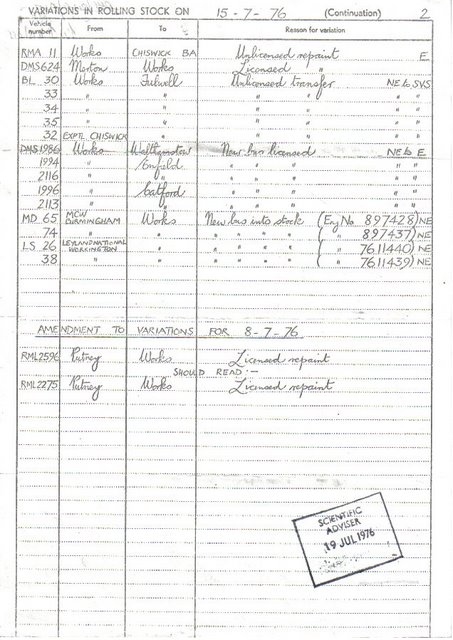 VARIATIONS IN ROLLING STOCK ON 15-7-76 (Continuation) 2
Vehicle number From To Reason for variation
RMA 11 Works CHISWICK BA Unlicensed repaint E
DMS624 Merton Works Licensed "
BL 30 Works Fulwell Unlicensed transfer NE to SVS
33 " " " " "
34 " " " " "
35 " " " " "
32 EXPTL CHISWICK " " " "
DMS1986 Works Walthamstow New bus licensed NE to E
1994 " Enfield " " " "
2116 " " " " " "
1996 " Catford " " " "
2113 " " " " " "
MD 65 MCW BIRMINGHAM Works New bus into stock (Eng No 897428) NE
74 " " " " " " ( " 897437) NE
LS 26 LEYLAND NATIONAL WORKINGTON " " " " " ( " 7611440) NE
38 " " " " " " ( " 7611439) NE
AMENDMENT TO VARIATIONS FOR 8-7-76
RML2596 Putney Works Licensed repaint
SHOULD READ:-
RML2275 Putney Works Licensed repaint
SCIENTIFIC
ADVISER
19 JUL 1976